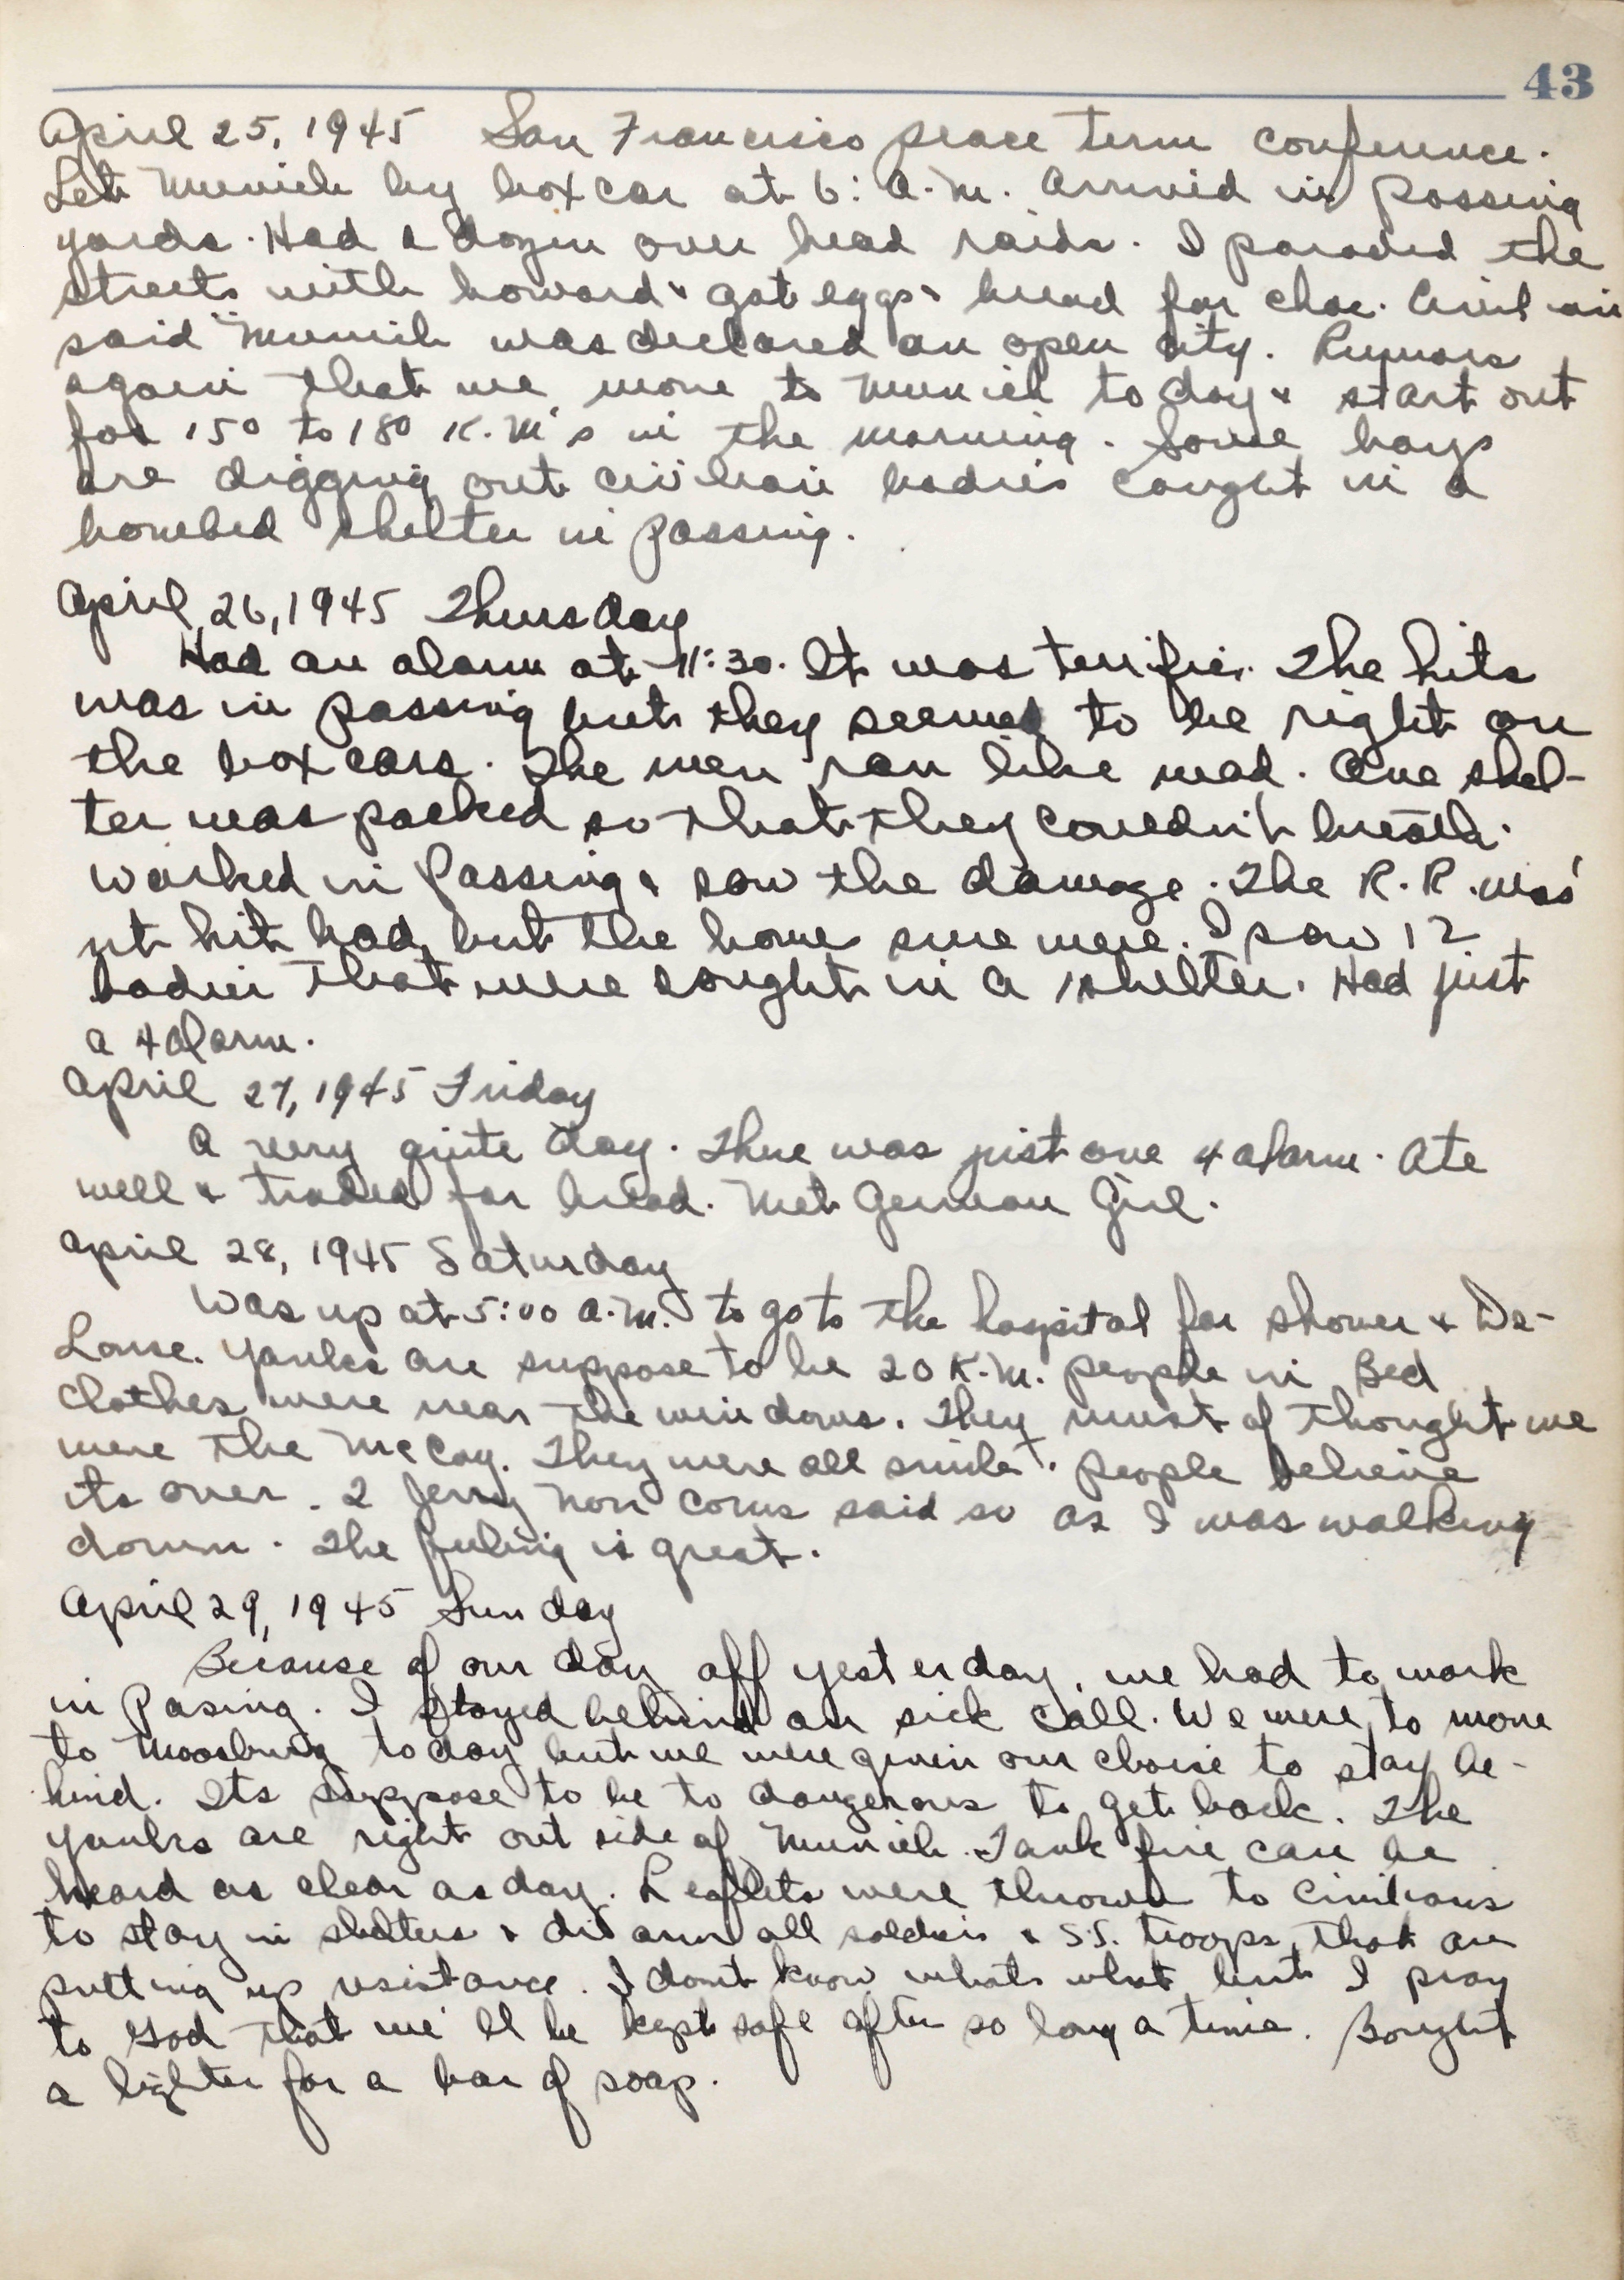 43
April 25, 1945 San Francisco peace term conference.
Left Munich by boxcar at 6: A.M. Arrived in Passing
yards. Had a dozen over head raids. I paraded the
streets with Howard & got eggs & bread for choc. Civilian
said "Munich was declared an open city. Rumors
again that we move to Munich today & start out
for 150 to 180 K.M's in the morning. Some boys
are digging out civilian bodies caught in a
bombed shelter in Passing.
April 26, 1945 Thursday
Had an alarm at 11:30. It was terrific. The hits
was in Passing but they seemed to be right on
the box cars. The men ran like mad. One shel-
ter was packed so that they couldn't breath.
Worked in Passing & saw the damage. The R.R. was'
nt hit bad, but the home sure were. I saw 12
bodies that were caught in a shelter. Had just
a 4 alarm.
April 27, 1945 Friday
A very quite day. There was just one 4 alarm. Ate
well & traded for bread. Met German Girl.
April 28, 1945 Saturday
Was up at 5:00 A.M. to go to the hospital for shower & De-
Louse. Yanks are suppose to be 20 K.M. people in Bed
Clothes were near the windows. They must of thought we
were the McCoy. They were all smiles. People believe
its over. 2 Jerry Non Coms said so as I was walking
down. The feeling is great.
April 29, 1945 Sunday
Because of our day off yesterday, we had to work
in Pasing. I stayed behind on sick call. We were to move
to Moosburg today but we were given our choise to stay be-
hind. Its suppose to be to dangerous to get back. The
Yanks are right out side of Munich. Tank fire can be
heard as clear as day. Leaflets were thrown to civilians
to stay in shelters & disarm all soldiers & S.S. troops that are
putting up resistance. I dont know whats what but I pray
to God that we'll be kept safe after so long a time. Bought
a lighter for a bar of soap.